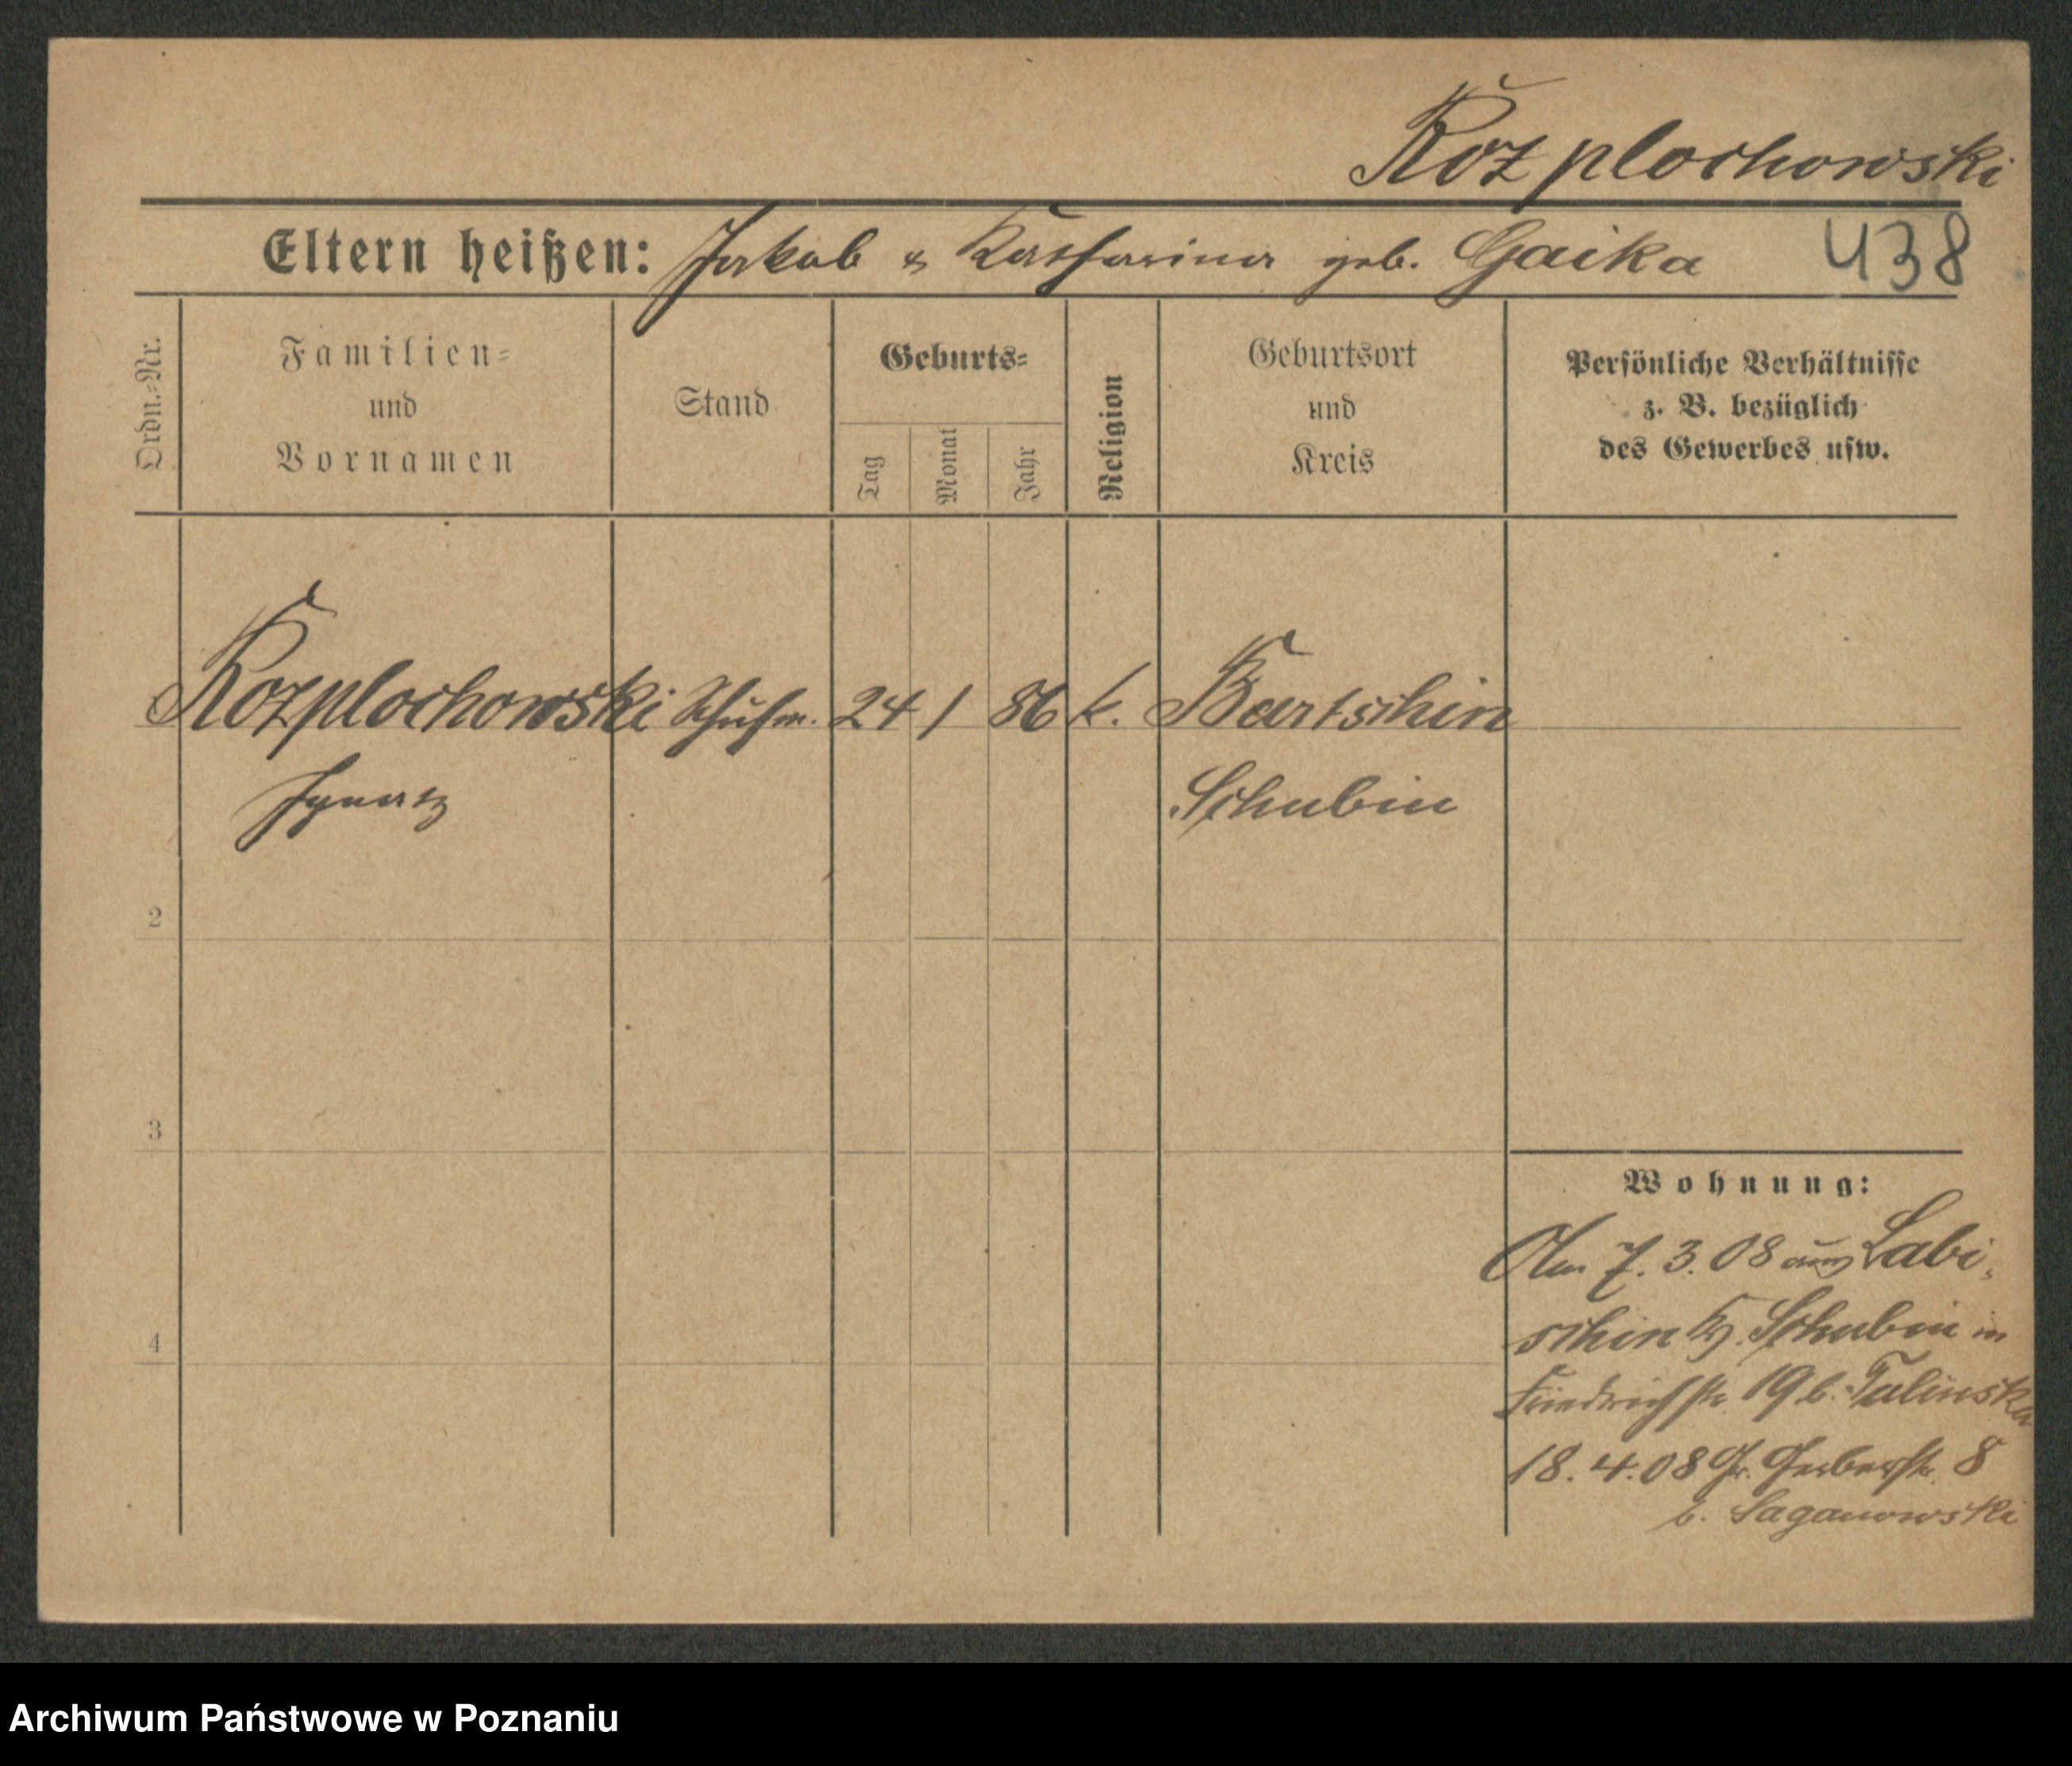 Rozplochowski
Eltern heißen: Jakob & Katharina geb. Gaika 438
Ordn.-Nr.
Familien-
und
Vornamen
Stand
Geburts-
Tag
Monat
Jahr
Religion
Geburtsort
und
Kreis
Persönliche Verhältnisse
z. B. bezüglich
des Gewerbes usw.
Rozplochowski Schuhm. 24 1 86 k. Bartschin
Ignatz Schubin
2
3
4
Wohnung:
Am 7. 3. 08 aus Labi-
schin Kr. Schubin in
Friedrichstr. 19 b. Talinska
18. 4. 08 Gr. Gerberstr. 8
b. Saganowski
Archiwum Państwowe w Poznaniu